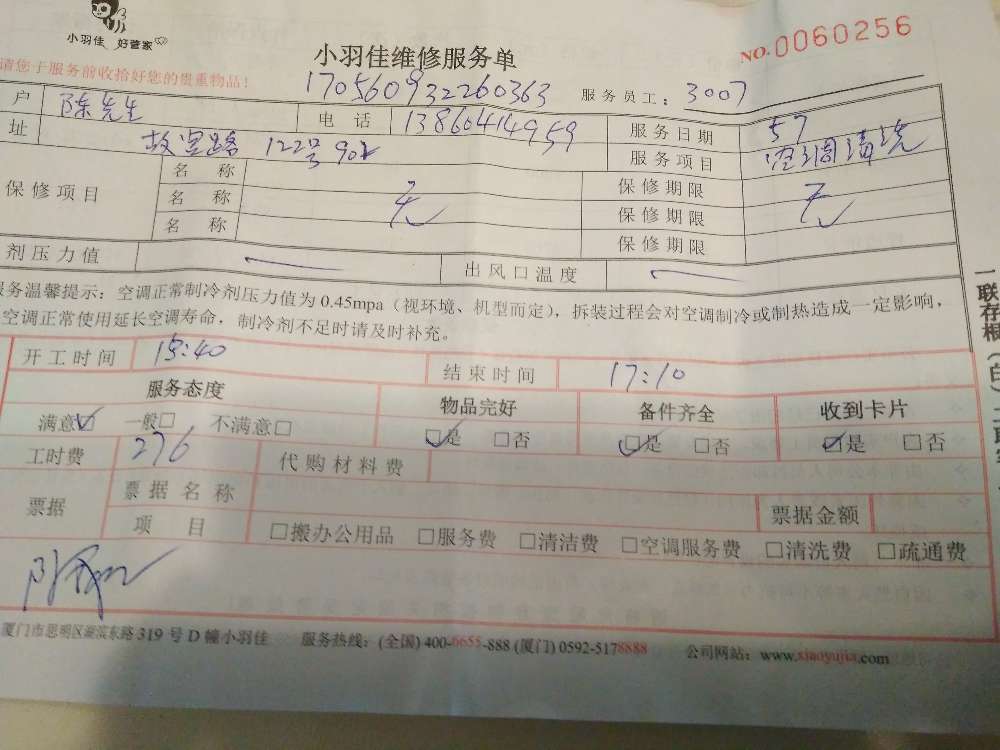 小羽佳 好管家
小羽佳维修服务单
NO.0060256
请您于服务前收拾好您的贵重物品！
170560932260363 服务员工：3007
户 陈先生 电话 13860414959 服务日期 57
址 故宫路 122号902 服务项目 空调清洗
保修项目 名称 无 保修期限 无
名称 保修期限
名称 保修期限
剂压力值 出风口温度
服务温馨提示：空调正常制冷剂压力值为0.45mpa（视环境、机型而定），拆装过程会对空调制冷或制热造成一定影响，
空调正常使用延长空调寿命，制冷剂不足时请及时补充。
开工时间 15:40 结束时间 17:10
服务态度 物品完好 备件齐全 收到卡片
满意☑ 一般□ 不满意□ ☑是 □否 ☑是 □否 ☑是 □否
工时费 276 代购材料费
票据 票据名称 票据金额
项目 □搬办公用品 □服务费 □清洁费 □空调服务费 □清洗费 □疏通费
厦门市思明区湖滨东路319号D幢小羽佳 服务热线：(全国) 400-6655-888 (厦门) 0592-5178888 公司网站：www.xiaoyujia.com
一联存根（白）